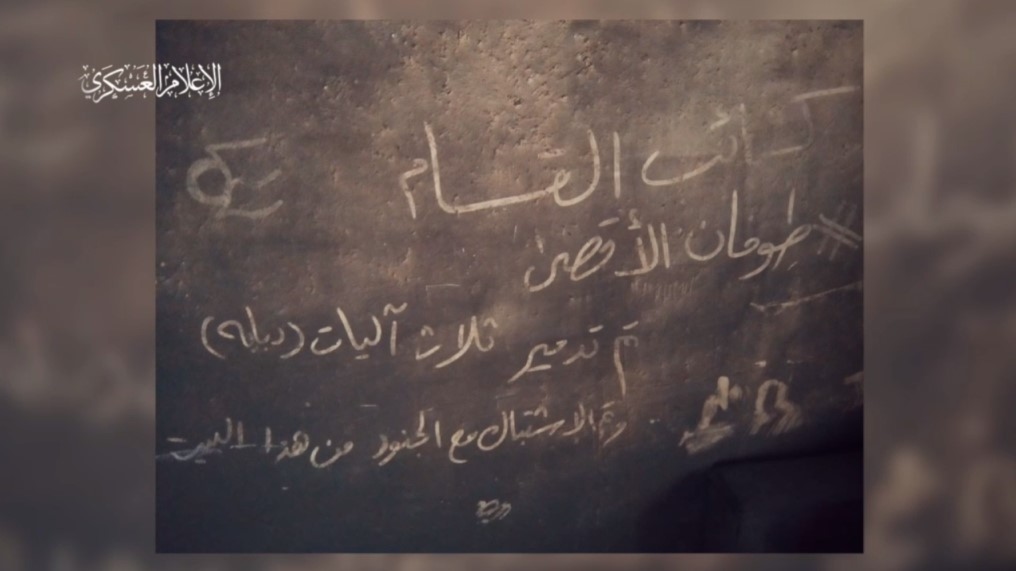 الإعلام العسكري
كتائب القسام
# طوفان الأقصى
تم تدمير ثلاث آليات (دبابه)
وتم الاشتباك مع الجنود من هذا البيت